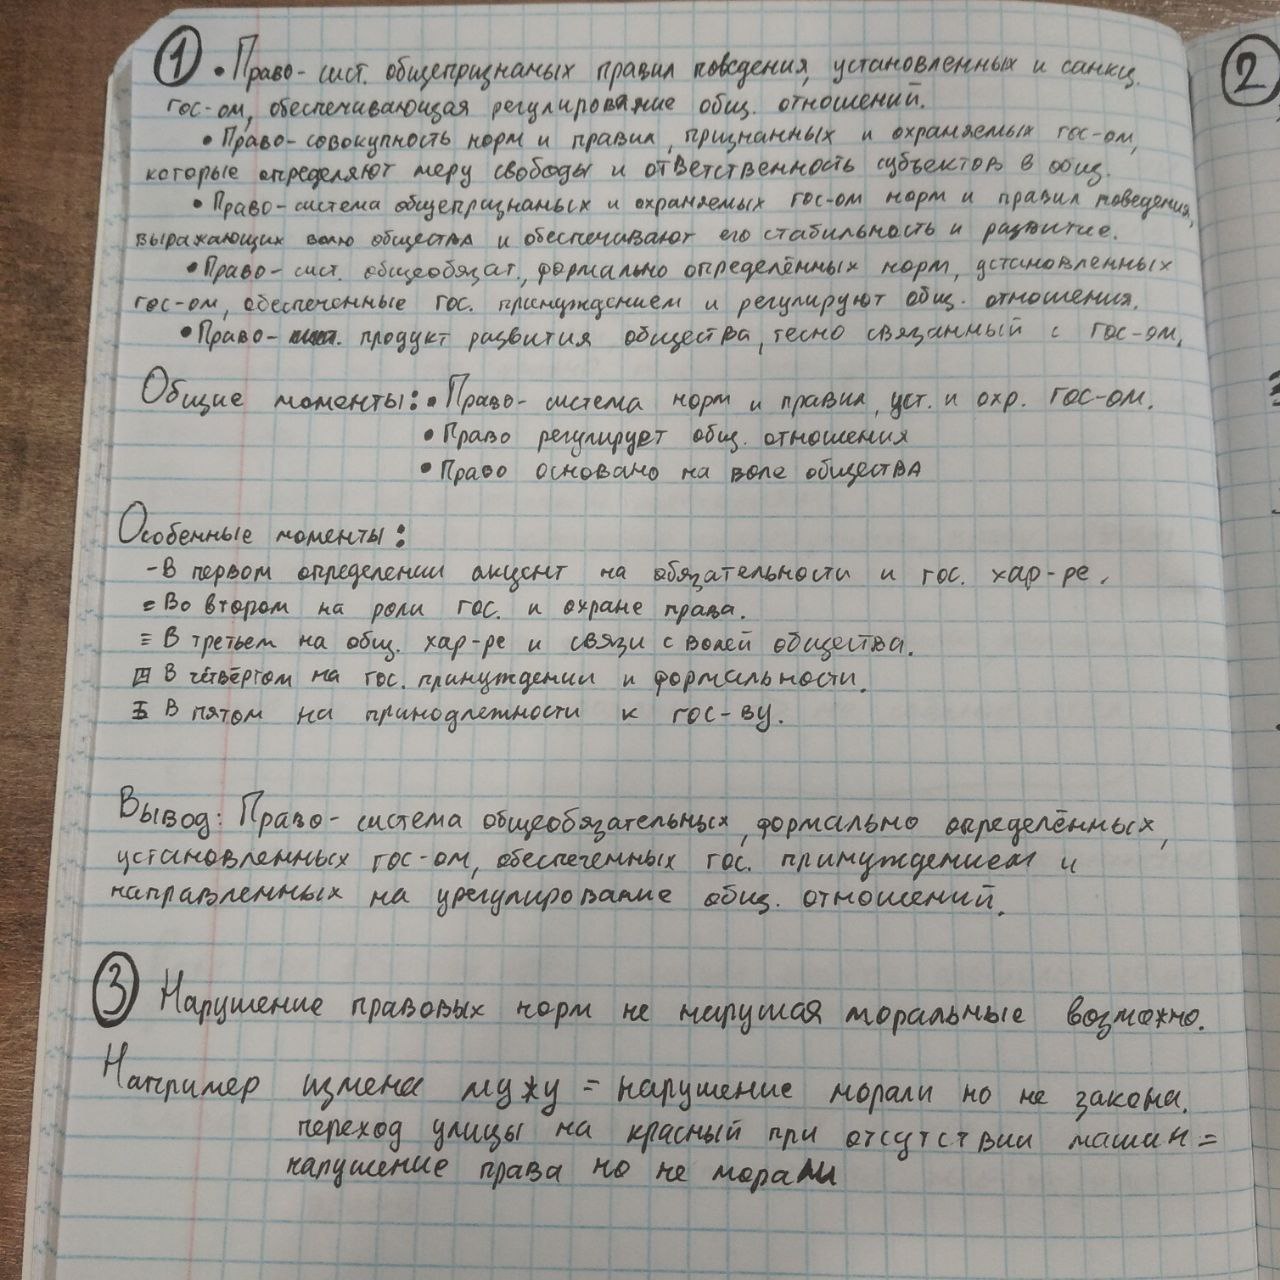 ① • Право- сист. общепризнаных правил поведения, установленных и санкц.
②
гос-ом, обеспечивающая регулирование общ. отношений.
• Право-совокупность норм и правил, признанных и охраняемых гос-ом,
которые определяют меру свободы и ответственность субъектов в общ.
• Право-система общепризнаных и охраняемых гос-ом норм и правил поведения,
выражающих волю общества и обеспечивают его стабильность и развитие.
• Право- сист. общеобязат., формально определённых норм, установленных
гос-ом, обеспеченные гос. принуждением и регулируют общ. отношения.
• Право- продукт развития общества, тесно связанный с гос-ом.
Общие моменты: • Право- система норм и правил, уст. и охр. гос-ом.
• Право регулирует общ. отношения
• Право основано на воле общества
Особенные моменты:
- В первом определении акцент на обязательности и гос. хар-ре.
= Во втором на роли гос. и охране права.
≡ В третьем на общ. хар-ре и связи с волей общества.
В четвёртом на гос. принуждении и формальности.
В пятом на принодлежности к гос-ву.
Вывод: Право- система общеобязательных, формально определённых,
установленных гос-ом, обеспеченных гос. принуждением и
направленных на урегулирование общ. отношений.
③ Нарушение правовых норм не нарушая моральные возможно.
Например измена мужу = нарушение морали но не закона.
переход улицы на красный при отсутствии машин =
нарушение права но не морали